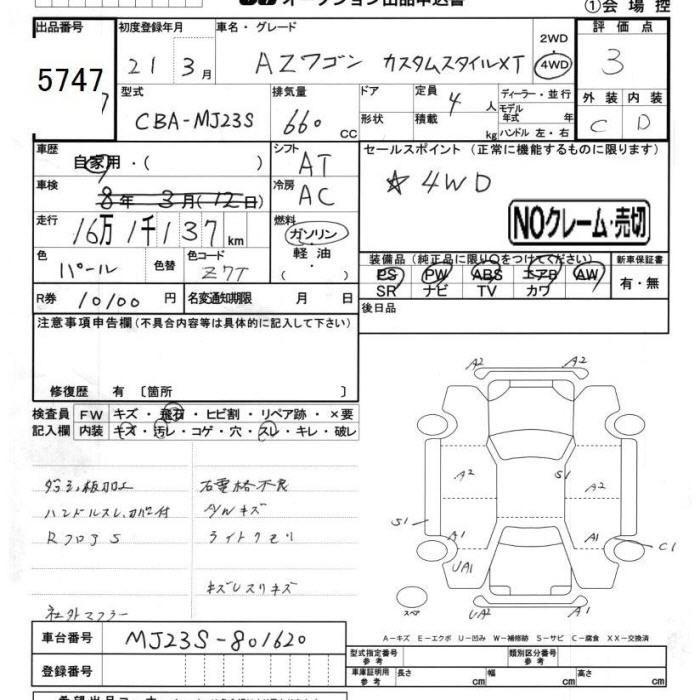 ①会場控
出品番号 初度登録年月 車名・グレード 評価点
5747 21年3月 AZワゴン カスタムスタイルXT 2WD・4WD 3
7
型式 排気量 ドア 定員 4人 ディーラー・並行 外装 内装
CBA-MJ23S 660CC 形状 積載 kg モデル年式 年 C D
ハンドル 左・右
車歴 自家用・( ) シフト AT セールスポイント(正常に機能するものに限ります)
車検 8年3月(12日) 冷房 AC ☆4WD
走行 16万1千137km 燃料 ガソリン・軽油・( ) NOクレーム・売切
色 パール 色替 色コード Z7T 装備品(純正品に限り○をつけてください) 新車保証書
PS PW ABS エアB AW 有・無
SR ナビ TV カワ
R券 10100円 名変通知期限 月 日 後日品
注意事項申告欄(不具合内容等は具体的に記入して下さい)
修復歴 有 〔箇所 〕
検査員 FW キズ・飛石・ヒビ割・リペア跡・×要
記入欄 内装 キズ・汚レ・コゲ・穴・スレ・キレ・破レ
A2 A2
ハンドルスレ、カバー付 A/Wキズ
ライトクモリ
A2 S1 A2
S1 A1 A1 C1
UA1
キズUスリキズ
社外マフラー
スペア UA2 A1
A-キズ E-エクボ U-凹み W-補修跡 S-サビ C-腐食 XX-交換済
車台番号 MJ23S-801620
型式指定番号 参考 類別区分番号 参考
登録番号 車庫証明用 参考 長さ cm 幅 cm 高さ cm